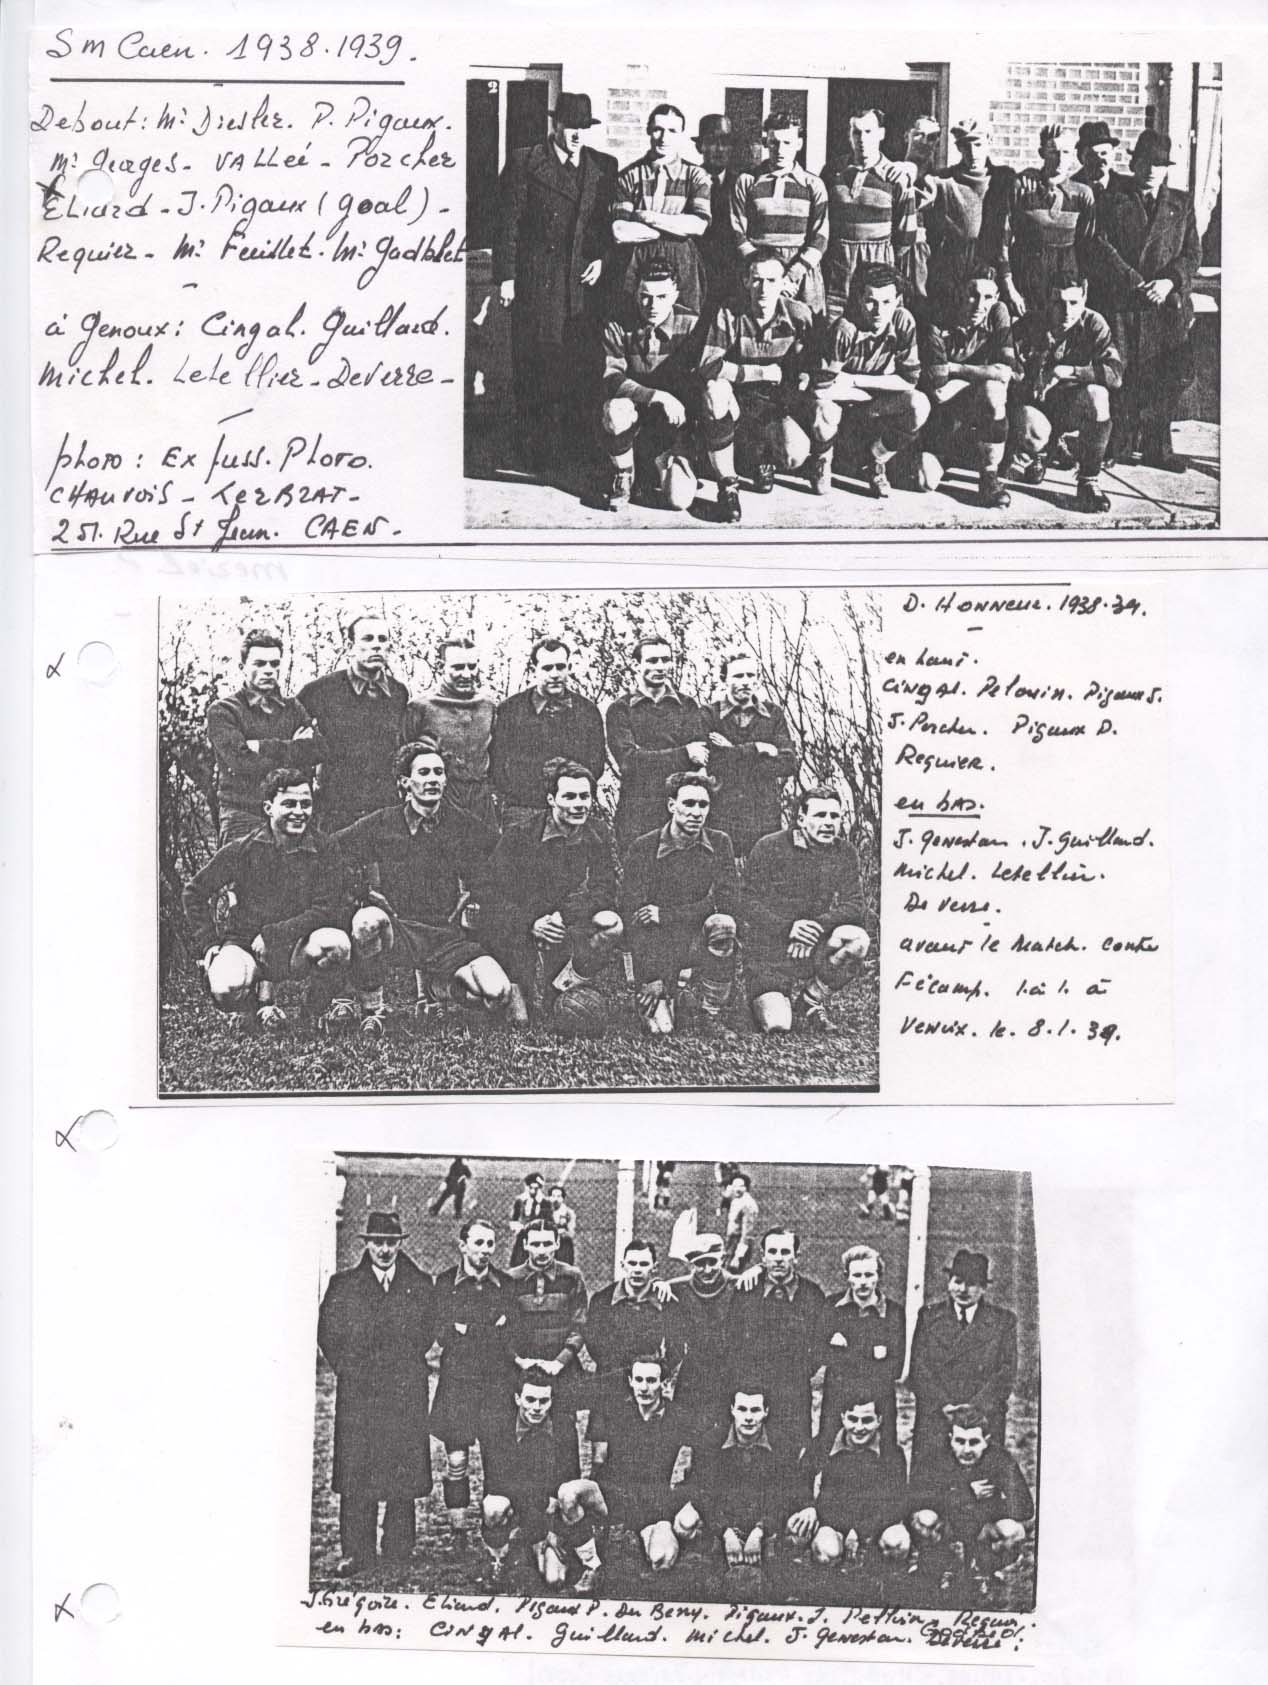 Sm Caen. 1938.1939.
Debout: Mr Diesler. P. Pigaux.
Mr Georges - VALLeé - Porcher
Eliard - J. Pigaux (goal) -
Requier - Mr Feuillet. Mr
à Genoux: Cingal. Guillard.
Michel. Letellier - Deverre -
photo: Ex fuss. Photo.
CHAUVOIS - KERBRAT -
251. Rue St Jean. CAEN -
2
D. Honneur. 1938.39.
en haut.
Cingal. Pelouin. Pigaux J.
J. Porcher. Pigaux P.
Requier.
en bas.
J. Genestan. J. Guillard.
Michel. Letellier.
De verre.
avant le Match. contre
Fécamp. 1 à 1. à
Venoix. le. 8.1.39.
J. Grégoire. Eliard. Pigaux P. Du Beny. Pigaux. J. Requier.
en bas: Cingal. Guillard. Michel. J. Genestan. Deverre.